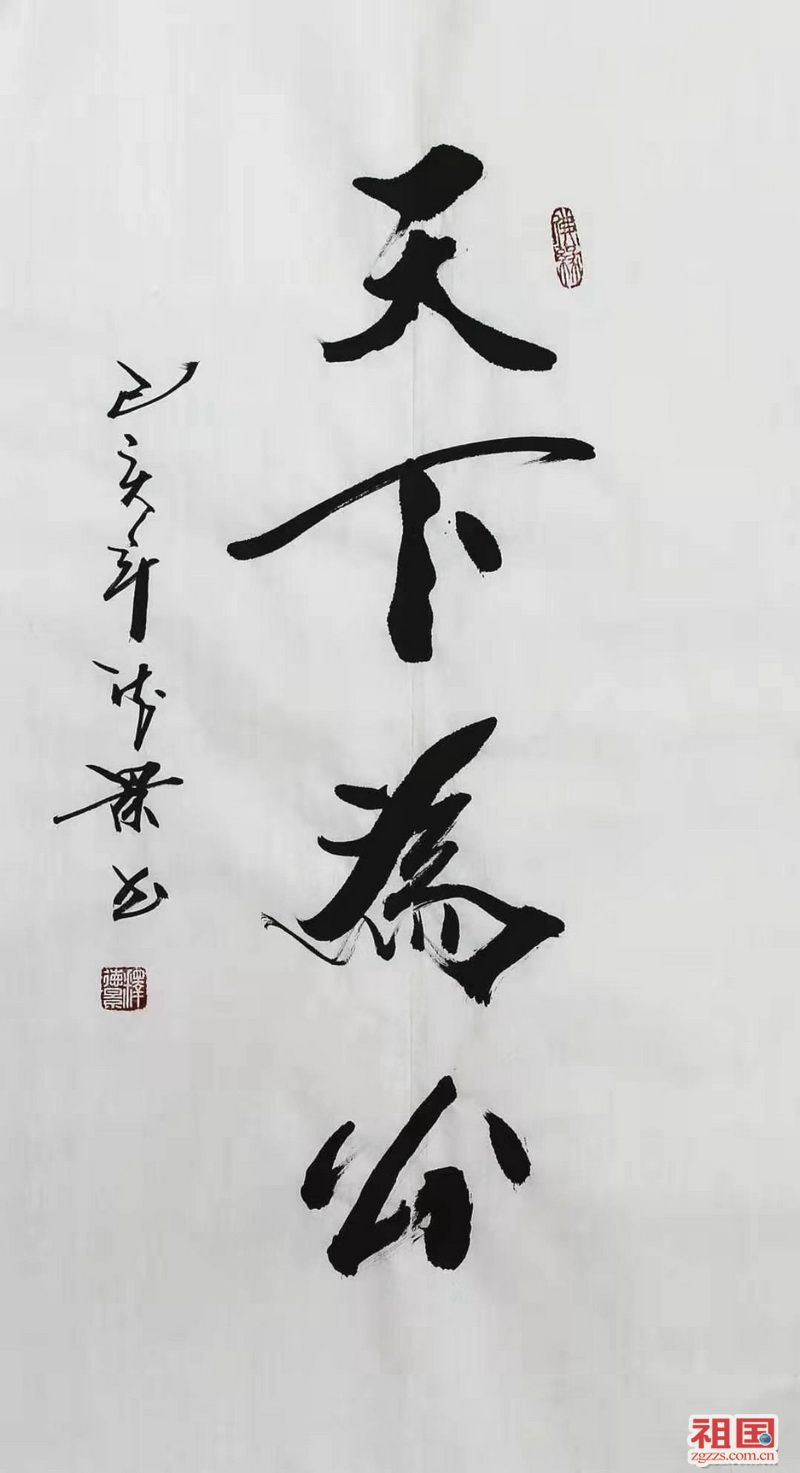 天下為公
己亥年德景书
祖国
zgzzs.com.cn